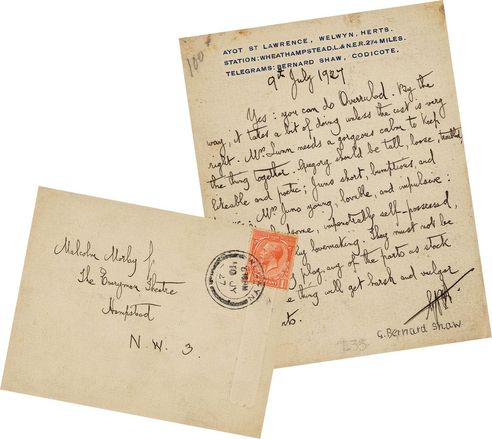 100
AYOT ST LAWRENCE, WELWYN, HERTS.
STATION: WHEATHAMPSTEAD, L.& N.E.R. 2¼ MILES.
TELEGRAMS: BERNARD SHAW, CODICOTE.
9th July 1927
Yes: you can do Overruled. By the
way, it takes a lot of doing unless the cast is very
right. Mrs Lunn needs a gorgeous calm to keep
the thing together. Gregory should be tall, loose,
likeable and poetic; Juno short, bumptious, and
Mrs Juno young, lovable, and impulsive:
some, imperturbably self-possessed,
lovemaking. They must not be
play any of the parts as stock
e thing will get harsh and vulgar
nto.
G. Bernard Shaw
235
Malcolm Morley
The Everyman Theatre
Hampstead
N.W. 3.
WELWYN
10 JY
27